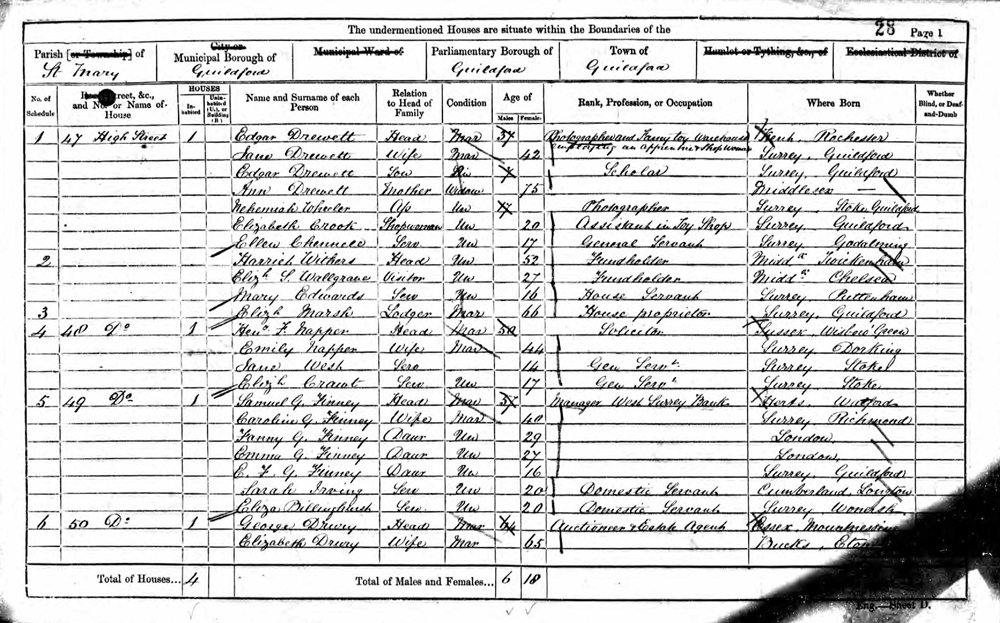 The undermentioned Houses are situate within the Boundaries of the
28 Page 1
Parish [or Township] of St Mary
City or Municipal Borough of Guildford
Municipal Ward of
Parliamentary Borough of Guildford
Town of Guildford
Hamlet or Tything, &c., of
Ecclesiastical District of
No. of Schedule
Street, &c., and No. or Name of House
HOUSES Inhabited Uninhabited (U.), or Building (B)
Name and Surname of each Person
Relation to Head of Family
Condition
Age of Males Females
Rank, Profession, or Occupation
Where Born
Whether Blind, or Deaf-and-Dumb
1 47 High Street 1 Edgar Drewett Head Mar 37 Photographer and Fancy toy Warehouse employing an apprentice & Shopwoman Kent, Rochester
Jane Drewett Wife Mar 42 Surrey, Guildford
Edgar Drewett Son Scholar Surrey, Guildford
Ann Drewett Mother Widow 75 Middlesex —
Nehemiah Wheeler Un 17 Photographer Surrey Stoke Guildford
Elizabeth Crook Shopwoman Un 20 Assistant in Toy Shop Surrey Guildford
Ellen Serv Un 17 General Servant Surrey Godalming
2 Harriet Head Un 52 Fundholder Midd x Twickenham
Eliz h S. Wallgrane Visitor Un 27 Fundholder Midd x Chelsea
Mary Edwards Serv Un 16 House Servant Surrey Puttenham
3 Eliz h Marsh Lodger Mar 66 House proprietor Surrey, Guildford
4 48 Do 1 Hen y F. Napper Head Mar 50 Solicitor Sussex
Emily Napper Wife Mar 44 Surrey Dorking
Jane West Serv 14 Gen Serv t Surrey Stoke
Eliz h Serv Un 17 Gen Serv t Surrey Stoke
5 49 Do 1 Samuel G. Finney Head Mar 57 Manager West Surrey Bank Herts, Watford
Caroline G. Finney Wife Mar 40 Surrey Richmond
Fanny G. Finney Daur Un 29 London,
Emma G. Finney Daur Un 27 London,
E. F. G. Finney Daur Un 16 Surrey, Guildford
Sarah Irving Serv Un 20 Domestic Servant Cumberland, Longton
Eliza Billinghurst Serv Un 20 Domestic Servant Surrey Wonersh
6 50 Do 1 George Drury Head Mar 64 Auctioneer & Estate Agent Essex Mountnessing
Elizabeth Drury Wife Mar 65 Bucks, Eton
Total of Houses... 4
Total of Males and Females... 6 18
Eng.—Sheet D.